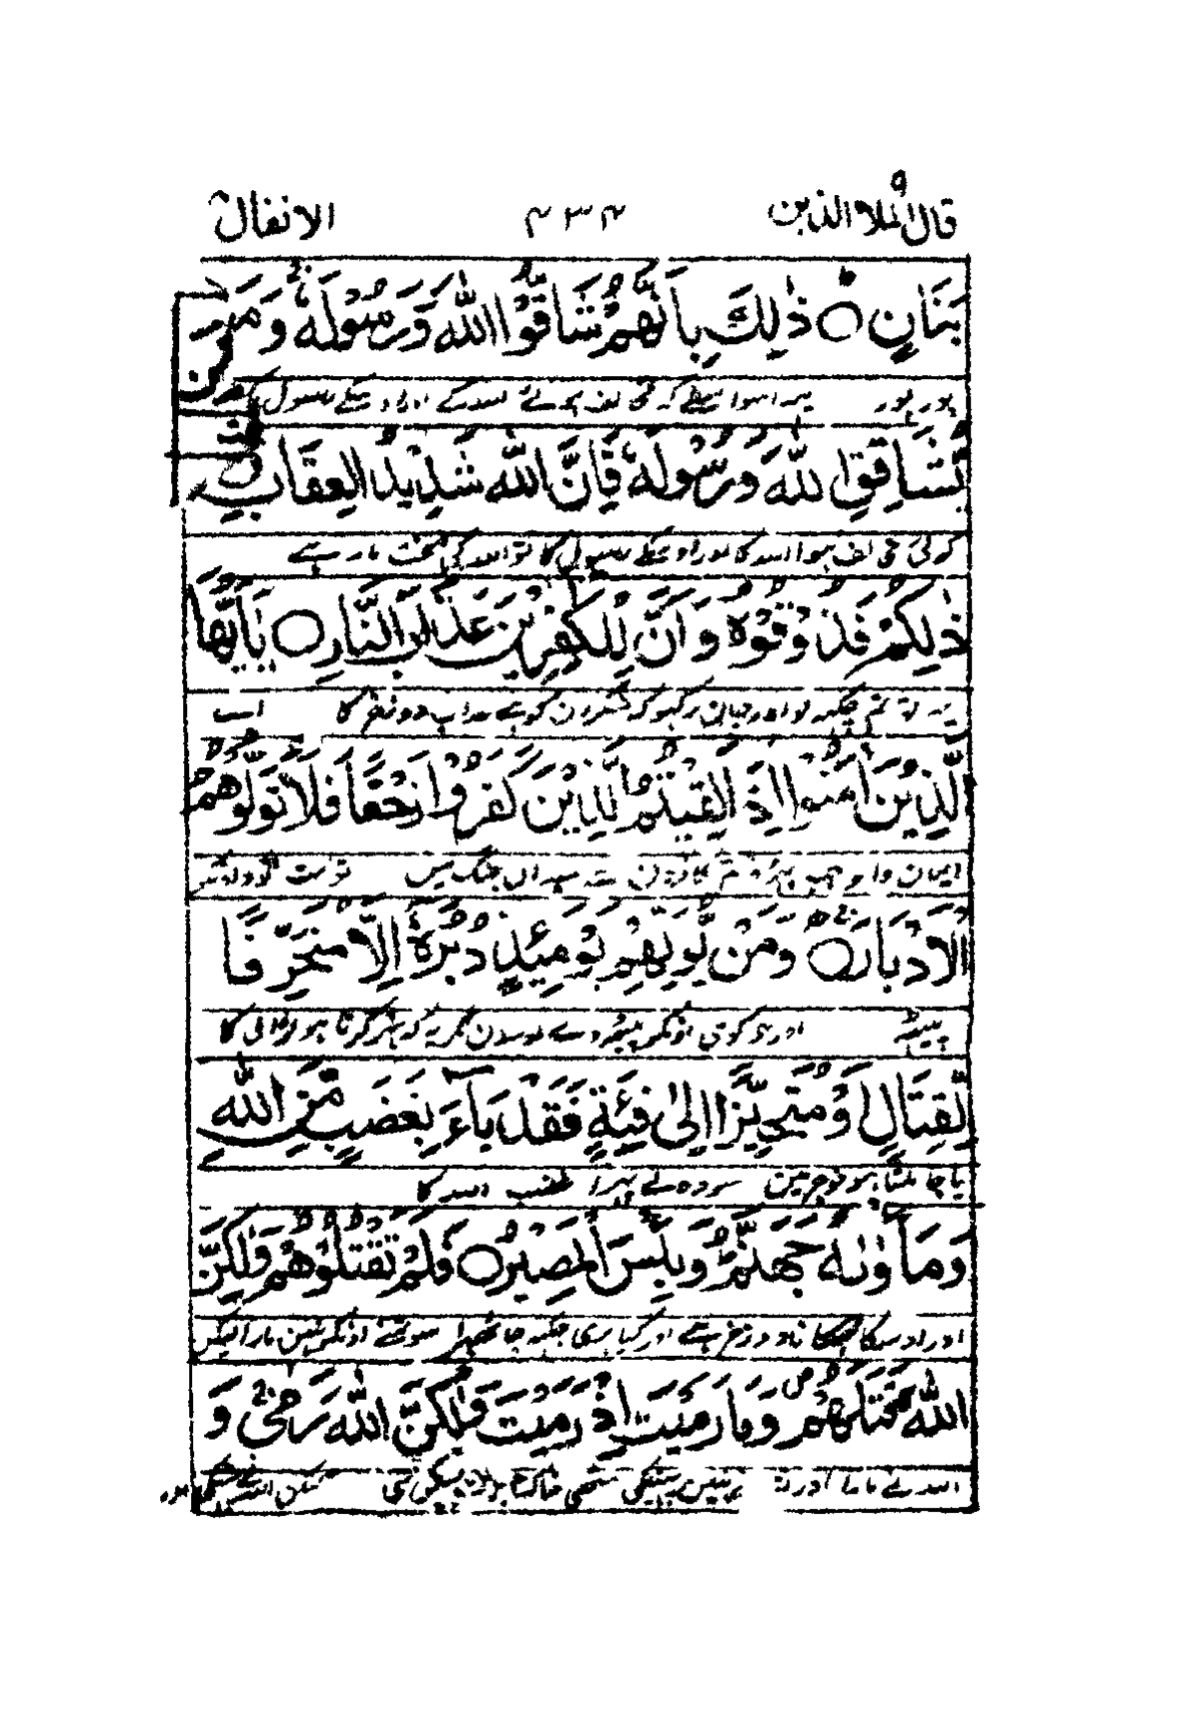 قال الملا الذين ٩ ۴۳۴ الانفال
بَنَانٍ ○ ذٰلِكَ بِاَنَّهُمْ شَاقُّوا اللّٰهَ وَرَسُوْلَهٗ وَمَنْ
پور پور یہ اسواسطے کہ مخالف ہوئے اللہ کے اور اوسکے رسول کے
يُّشَاقِقِ اللّٰهَ وَرَسُوْلَهٗ فَاِنَّ اللّٰهَ شَدِيْدُ الْعِقَابِ
کوئی مخالف ہوا اللہ کا اور اوسکے رسول کا تو اللہ کی سخت مار ہے
ذٰلِكُمْ فَذُوْقُوْهُ وَاَنَّ لِلْكٰفِرِيْنَ عَذَابَ النَّارِ ○ يٰاَيُّهَا
یہ تو تم چکہہ لو اور جان رکہو کہ منکرون کو ہے عذاب دوزخ کا اے
الَّذِيْنَ اٰمَنُوْا اِذَا لَقِيْتُمُ الَّذِيْنَ كَفَرُوْا زَحْفًا فَلَا تُوَلُّوْهُمُ
ایمان والو جب بہڑو تم کافرون سے میدان جنگ میں تو مت
الْاَدْبَارَ ○ وَمَنْ يُّوَلِّهِمْ يَوْمَئِذٍ دُبُرَهٗ اِلَّا مُتَحَرِّفًا
پیٹھہ اور جو کوئی اونکو پیٹھہ دے اوسدن مگر یہ کہ ہنر کرتا ہو لڑائی کا
لِّقِتَالٍ اَوْ مُتَحَيِّزًا اِلٰى فِئَةٍ فَقَدْ بَآءَ بِغَضَبٍ مِّنَ اللّٰهِ
یا جا ملتا ہو فوج مین سو وہ لے پہرا غضب اللہ کا
وَمَاْوٰىهُ جَهَنَّمُ وَبِئْسَ الْمَصِيْرُ ○ فَلَمْ تَقْتُلُوْهُمْ وَلٰكِنَّ
اور اوسکا ٹھکانا دوزخ ہے اور کیا بری جگہہ جا ٹھہرا سو تمنے اونکو نہین مارا لیکن
اللّٰهَ قَتَلَهُمْ وَمَا رَمَيْتَ اِذْ رَمَيْتَ وَلٰكِنَّ اللّٰهَ رَمٰى وَ
اللہ نے مارا اور تو نے نہین پہینکی مٹھی خاک جسوقت پہینکی تہی لیکن اللہ نے پہینکی اور